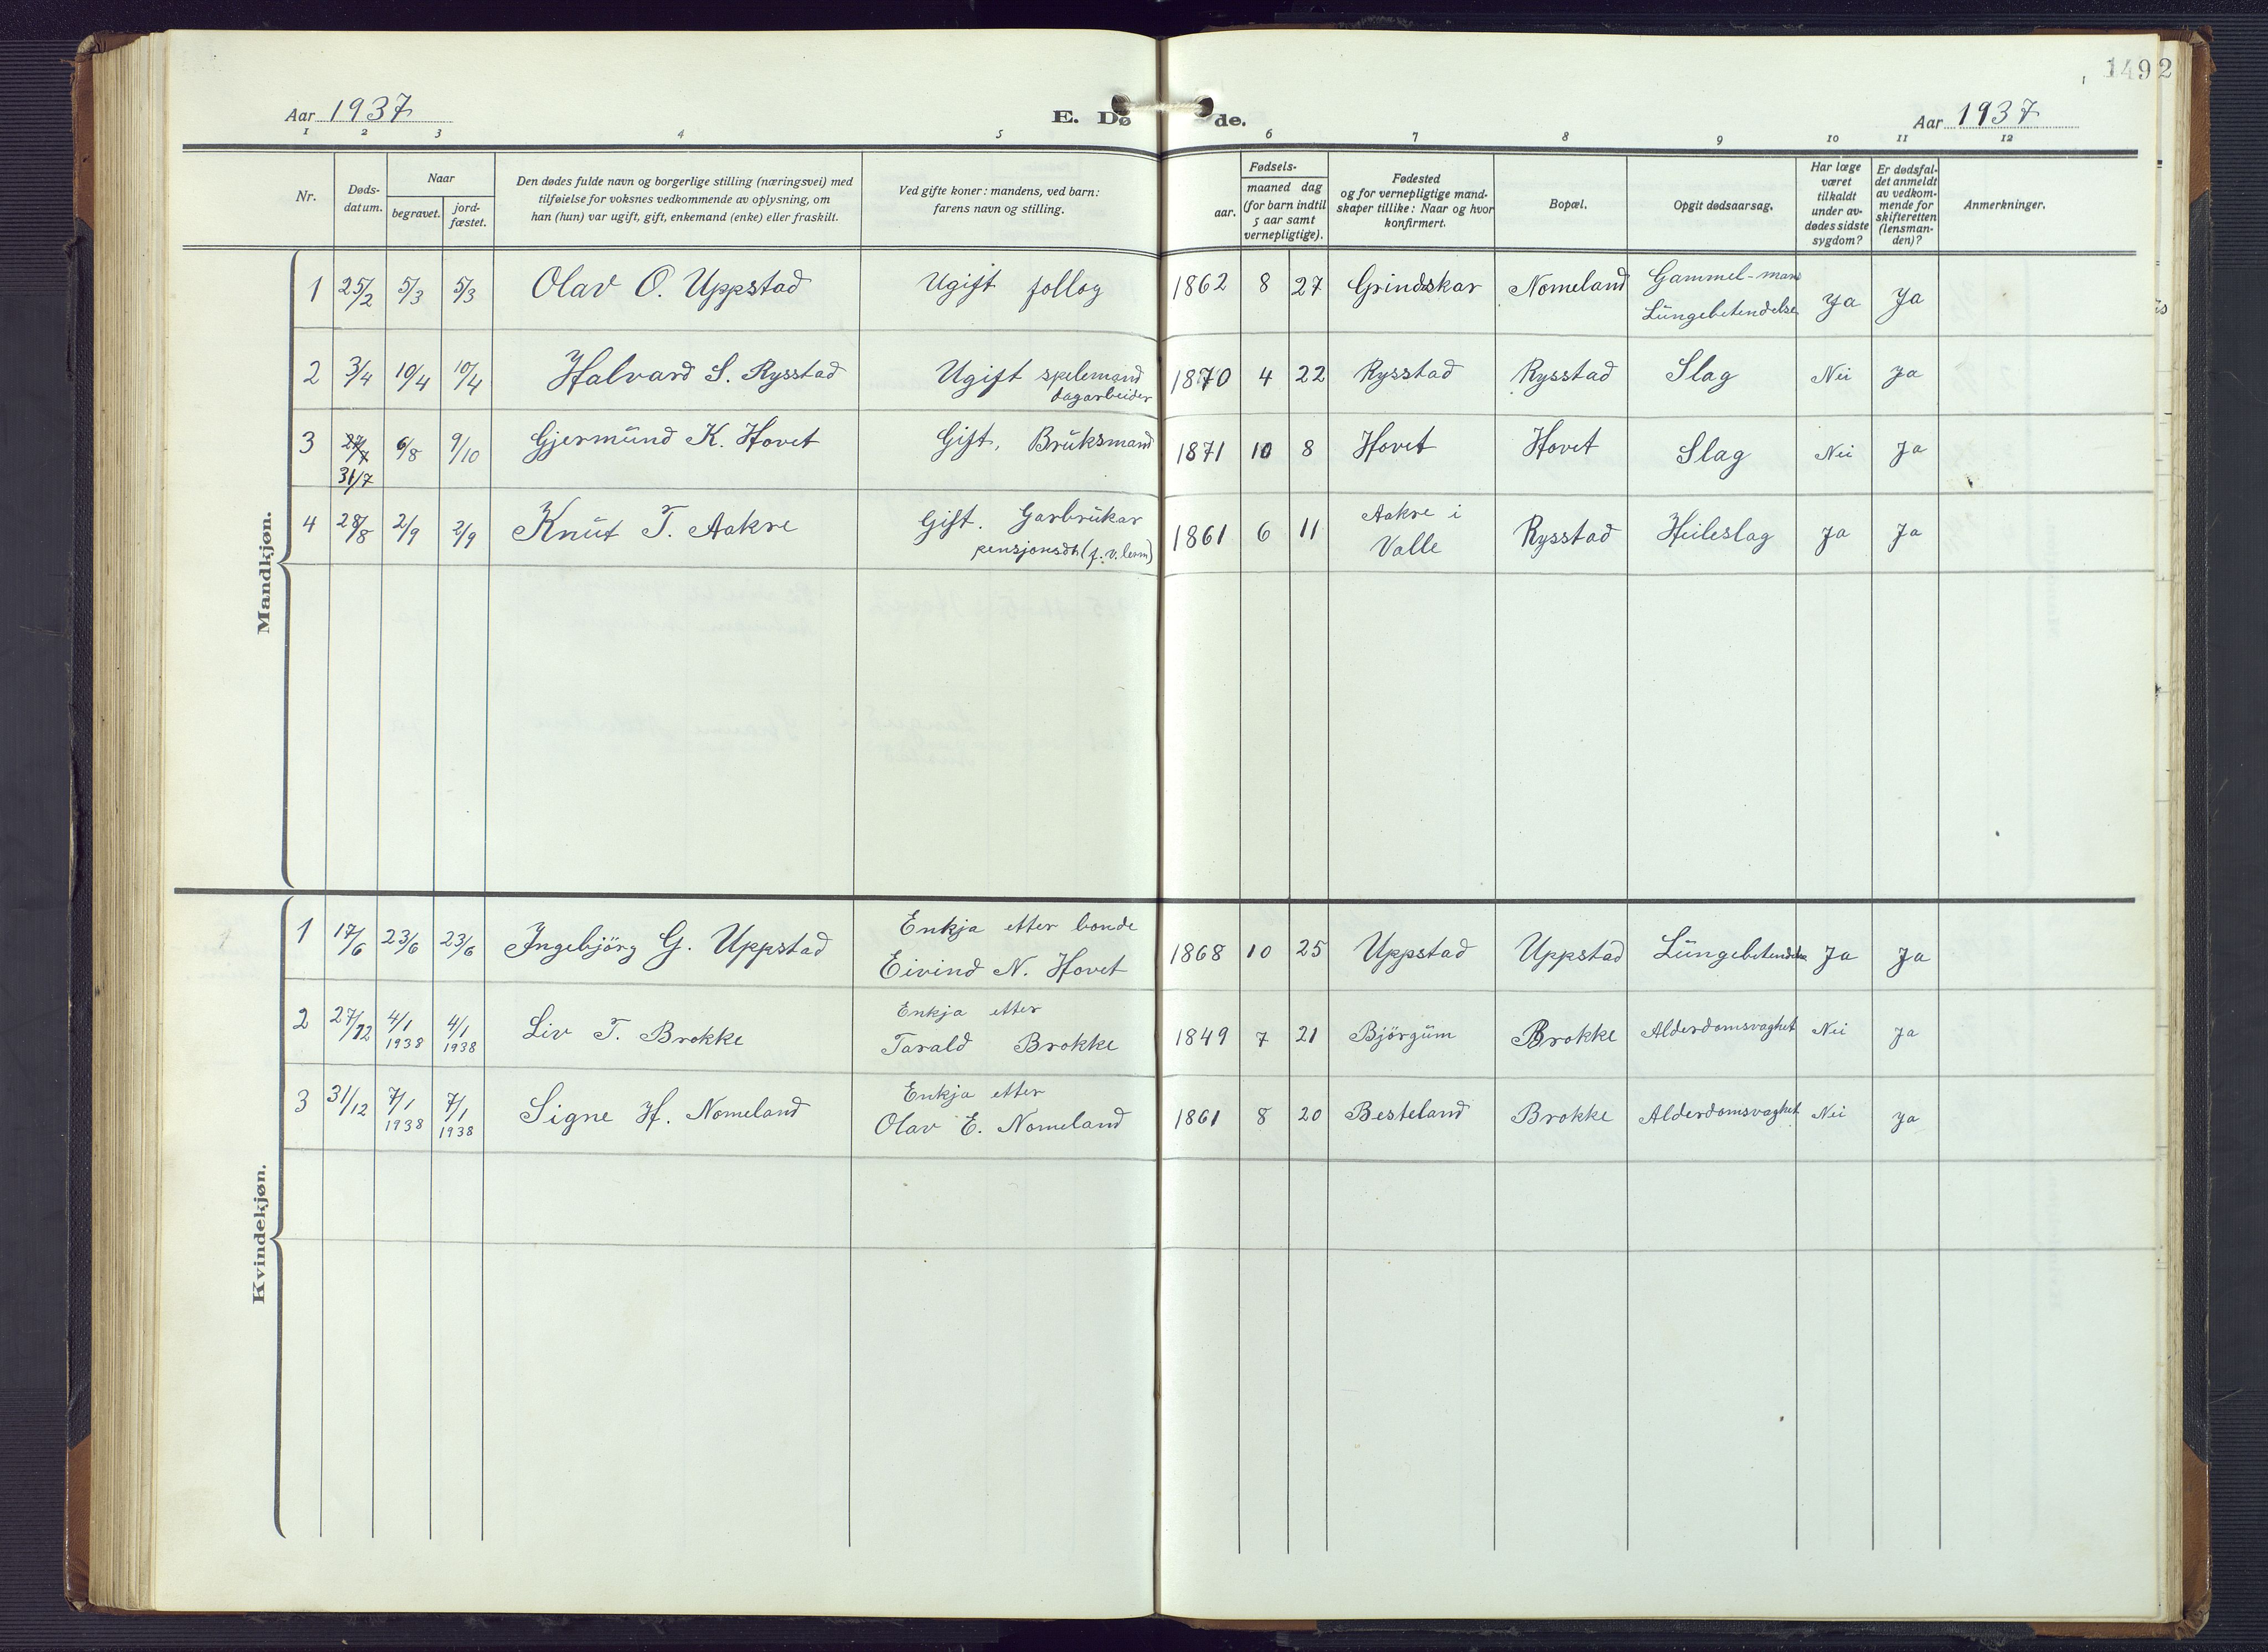 1492
Aar 1937
E. Dø
de.
Aar 1937
1 2 3 4 5 6 7 8 9 10 11 12
Nr.
Døds-
datum.
Naar
begravet.
jord-
fæstet.
Den dødes fulde navn og borgerlige stilling (næringsvei) med
tilføielse for voksnes vedkommende av oplysning, om
han (hun) var ugift, gift, enkemand (enke) eller fraskilt.
Ved gifte koner: mandens, ved barn:
farens navn og stilling.
Fødsels-
aar.
maaned dag
(for barn indtil
5 aar samt
vernepligtige).
Fødested
og for vernepligtige mand-
skaper tillike: Naar og hvor
konfirmert.
Bopæl.
Opgit dødsaarsag.
Har læge
været
tilkaldt
under av-
dødes sidste
sygdom?
Er dødsfal-
det anmeldt
av vedkom-
mende for
skifteretten
(lensman-
den)?
Anmerkninger.
Mandkjøn.
1 25/2 5/3 5/3 Olav O. Uppstad Ugift follog 1862 8 27 Grindskar Nomeland Gammel-mann
Lüngebetendelse Ja Ja
2 3/4 10/4 10/4 Halvard S. Rysstad Ugift spelemand
dagarbeider 1870 4 22 Rysstad Rysstad Slag Nei Ja
3 27/7
31/7 6/8 9/10 Gjermünd K. Hovet Gift, Brüksmand 1871 10 8 Hovet Hovet Slag Nei Ja
4 28/8 2/9 2/9 Knüt T. Aakre Gift. Garbrükar
pensjonsdh (f. v. lenm) 1861 6 11 Aakre i
Valle Rysstad Heileslag Ja Ja
Kvindekjøn.
1 17/6 23/6 23/6 Ingebjörg G. Uppstad Enkja etter bonde
Eivind N. Hovet 1868 10 25 Uppstad Uppstad Lüngebetendelse Ja Ja
2 27/12 4/1
1938 4/1
1938 Liv T. Brokke Enkja etter
Tarald Brokke 1849 7 21 Björgüm Brokke Alderdomsvaghet Nei Ja
3 31/12 7/1
1938 7/1
1938 Signe H. Nomeland Enkja etter
Olav E. Nomeland 1861 8 20 Besteland Brokke Alderdomsvaghet Nei Ja